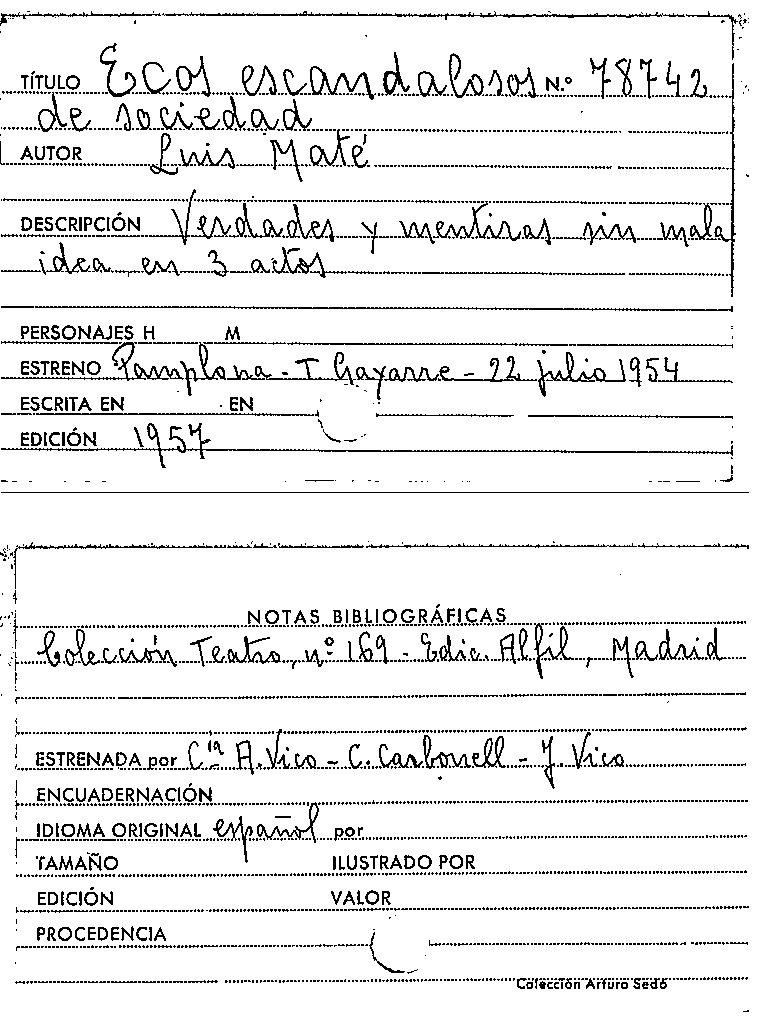 TÍTULO Ecos escandalosos N.º 78742
de sociedad
AUTOR Luis Maté
DESCRIPCIÓN Verdades y mentiras sin mala
idea en 3 actos
PERSONAJES H M
ESTRENO Pamplona - T. Gayarre - 22 julio 1954
ESCRITA EN EN
EDICIÓN 1957
NOTAS BIBLIOGRÁFICAS
Colección Teatro, nº 169 - Edic. Alfil, Madrid
ESTRENADA por Cía A. Vico - C. Carbonell - J. Vico
ENCUADERNACIÓN
IDIOMA ORIGINAL español por
TAMAÑO ILUSTRADO POR
EDICIÓN VALOR
PROCEDENCIA
Colección Arturo Sedó